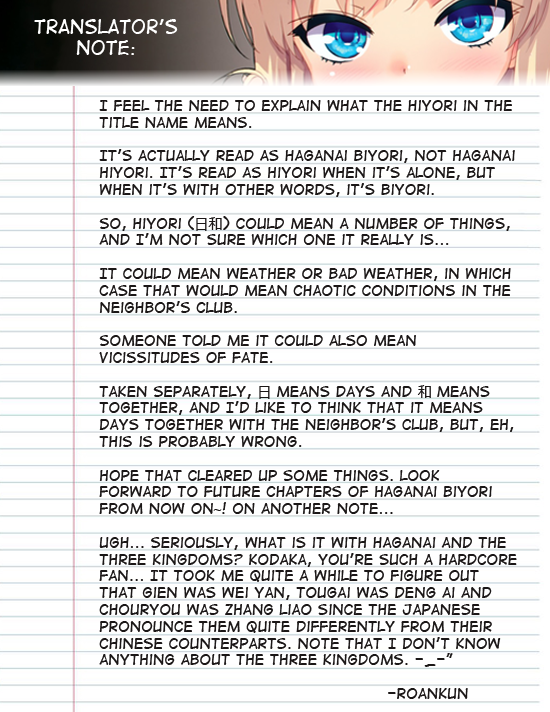 TRANSLATOR'S
NOTE:
I FEEL THE NEED TO EXPLAIN WHAT THE HIYORI IN THE
TITLE NAME MEANS.
IT'S ACTUALLY READ AS HAGANAI BIYORI, NOT HAGANAI
HIYORI. IT'S READ AS HIYORI WHEN IT'S ALONE, BUT
WHEN IT'S WITH OTHER WORDS, IT'S BIYORI.
SO, HIYORI (日和) COULD MEAN A NUMBER OF THINGS,
AND I'M NOT SURE WHICH ONE IT REALLY IS...
IT COULD MEAN WEATHER OR BAD WEATHER, IN WHICH
CASE THAT WOULD MEAN CHAOTIC CONDITIONS IN THE
NEIGHBOR'S CLUB.
SOMEONE TOLD ME IT COULD ALSO MEAN
VICISSITUDES OF FATE.
TAKEN SEPARATELY, 日 MEANS DAYS AND 和 MEANS
TOGETHER, AND I'D LIKE TO THINK THAT IT MEANS
DAYS TOGETHER WITH THE NEIGHBOR'S CLUB, BUT, EH,
THIS IS PROBABLY WRONG.
HOPE THAT CLEARED UP SOME THINGS. LOOK
FORWARD TO FUTURE CHAPTERS OF HAGANAI BIYORI
FROM NOW ON~! ON ANOTHER NOTE...
UGH... SERIOUSLY, WHAT IS IT WITH HAGANAI AND THE
THREE KINGDOMS? KODAKA, YOU'RE SUCH A HARDCORE
FAN... IT TOOK ME QUITE A WHILE TO FIGURE OUT
THAT GIEN WAS WEI YAN, TOUGAI WAS DENG AI AND
CHOURYOU WAS ZHANG LIAO SINCE THE JAPANESE
PRONOUNCE THEM QUITE DIFFERENTLY FROM THEIR
CHINESE COUNTERPARTS. NOTE THAT I DON'T KNOW
ANYTHING ABOUT THE THREE KINGDOMS. -_-"
-ROANKUN